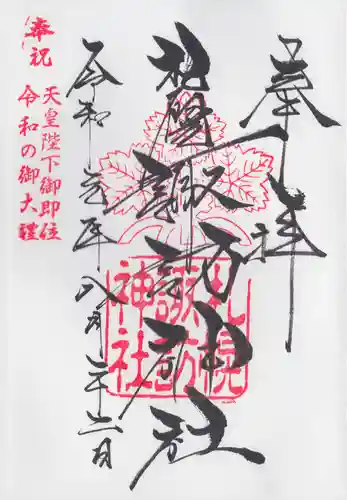 奉拝
札幌諏訪神社
札幌
諏訪
神社
令和元年八月二十二日
奉祝
天皇陛下御即位
令和の御大禮